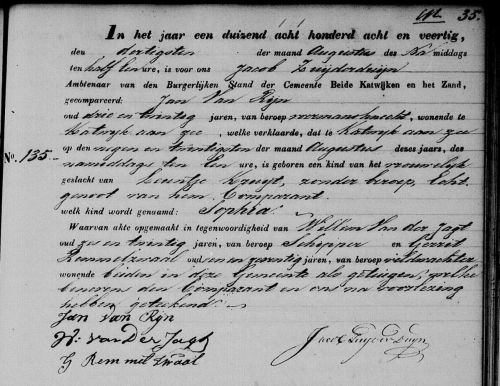 35.
In het jaar een duizend acht honderd acht en veertig,
den dertigsten der maand Augustus des Na middags
ten half een ure, is voor ons Jacob Zuijderduijn
Ambtenaar van den Burgerlijken Stand der Gemeente Beide Katwijken en het Zand,
gecompareerd: Jan Van Rijn
oud drie en twintig jaren, van beroep wonende te
Katwijk aan zee, welke verklaarde, dat te Katwijk aan zee
op den negen en twintigsten der maand Augustus dezes jaars, des
No. 135. namiddags ten een ure, is geboren een kind van het vrouwelijk
geslacht van Leuntje Kruyt, zonder beroep, Echt
genoot van hem Comparant.
welk kind wordt genaamd: Sophia.
Waarvan akte opgemaakt in tegenwoordigheid van Willem Van der Jagt
oud zes en twintig jaren, van beroep Schipper en Gerrit
Remmelzwaal oud en jaren, van beroep veldwachter,
wonende beiden in deze Gemeente als getuigen, welke
benevens den Comparant en ons na voorlezing
hebben geteekend.
Jan van Rijn
W. van Der Jagt
G Rem mel zwaal
Jacob Zuyderduyn